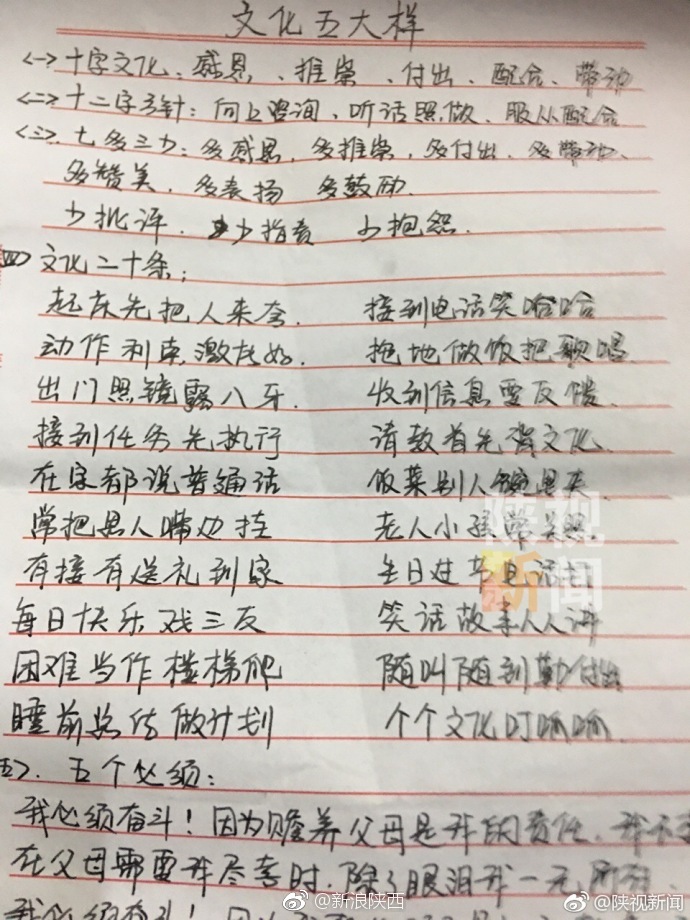 文化五大样
<一>十字文化：感恩、推崇、付出、配合、带动
<二>十二字方针：向上咨询、听话照做、服从配合
<三>七多三少：多感恩，多推崇，多付出、多带动、
多赞美，多表扬 多鼓励
少批评、少指责 少抱怨.
四 文化二十条；
起床先把人来夸. 接到电话笑哈哈
动作利索激 拖地做饭把歌唱
出门照镜露八牙. 收到信息要反馈.
接到任务先执行 请教首先背文化
在家都说普通话 饭菜别人
常把恩人嘴边挂 老人小孩常关照.
有接有送礼到家 生日过节
每日快乐戏三反 笑话故事人人讲
困难当作楼梯爬 随叫随到勤付出
睡前总结做计划 个个文化叮呱呱
五>、五个必须：
我必须奋斗！因为赡养父母是我的责任、我不
在父母需要我尽孝时，除了眼泪我一无所
我必须奋斗！因为
陕视
新闻
@新浪陕西
@陕视新闻